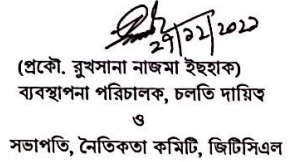 ২৭/১২/২০২২
(প্রকৌ. রুখসানা নাজমা ইছহাক)
ব্যবস্থাপনা পরিচালক, চলতি দায়িত্ব
ও
সভাপতি, নৈতিকতা কমিটি, জিটিসিএল